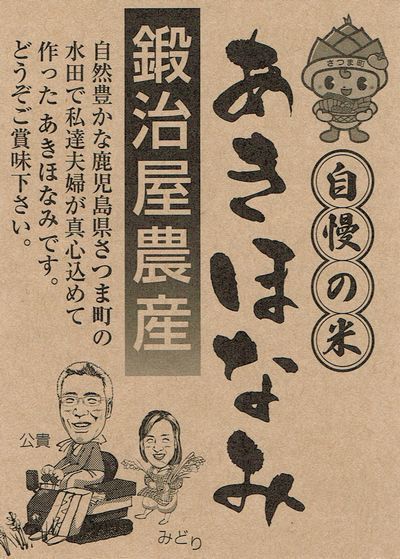 さつま町
自慢の米
あきほなみ
鍛治屋農産
自然豊かな鹿児島県さつま町の
水田で私達夫婦が真心込めて
作った あきほなみです。
どうぞご賞味下さい。
公貴
みどり